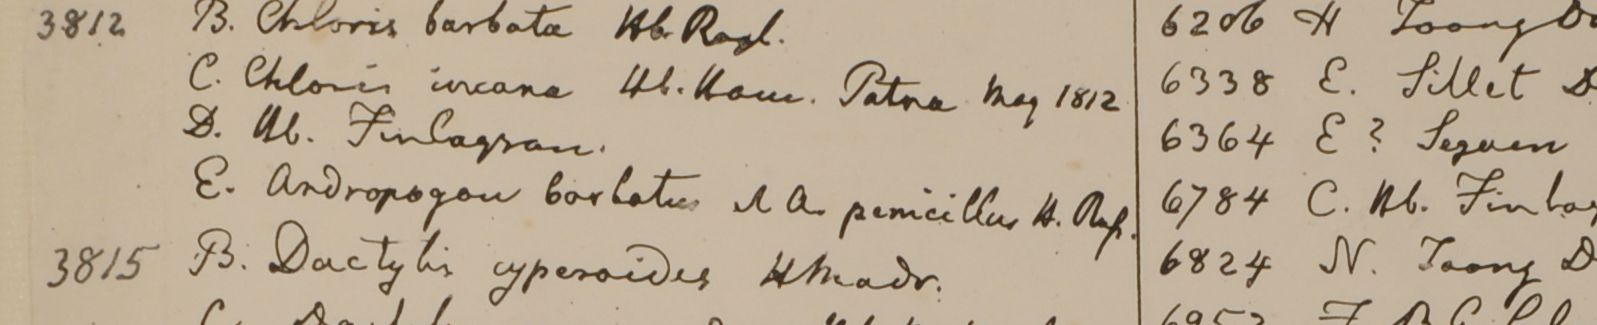 3812 B. Chloris barbata Hb. Roxl.
C. Chloris incana Hb. Ham. Patna May 1812
D. Hb. Finlayson.
E. Andropogon barbatus & A. penicillus H. Rof.
3815 B. Dactylis cyperoides H Madr.
6206 H Toong Do
6338 E. Sillet D
6364 E ? Segaen
6784 C. Hb. Finlay
6824 N. Toong D